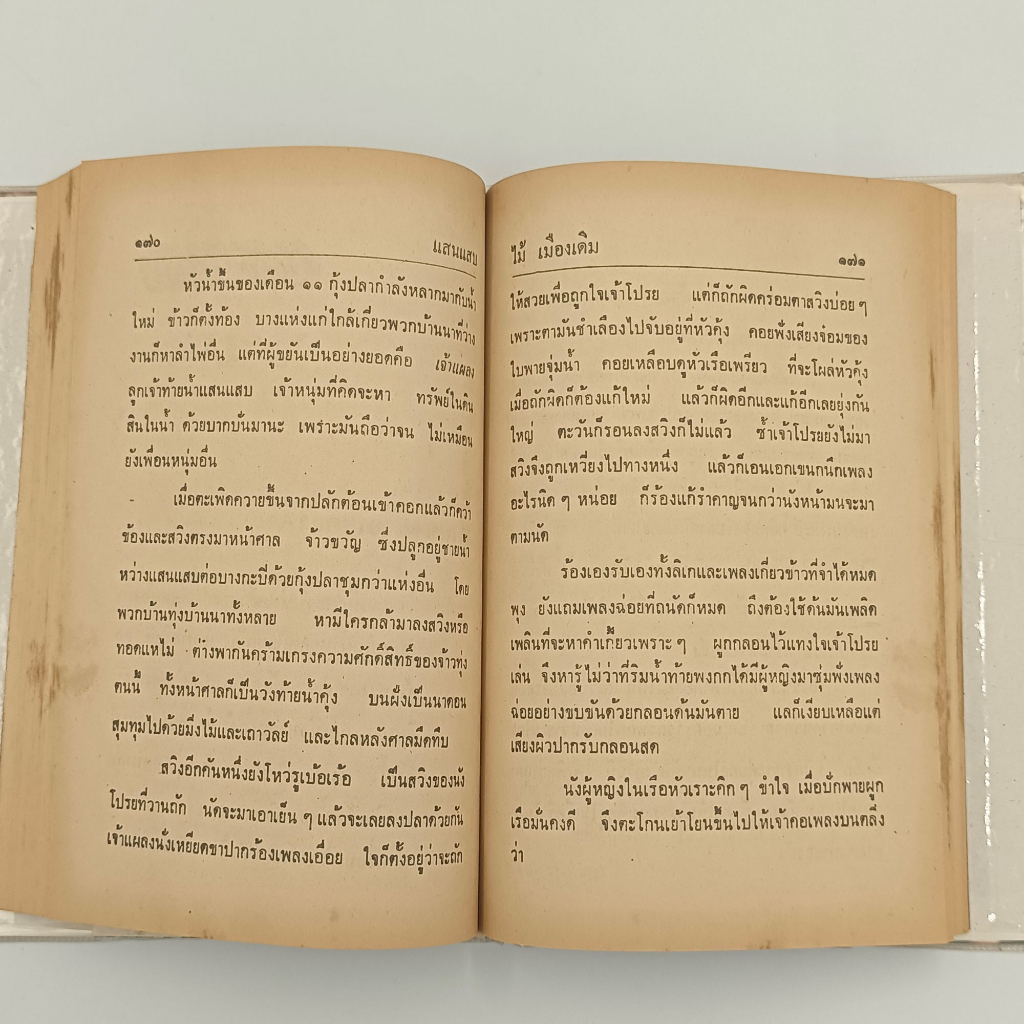 ๑๗๐ แสนแสบ
หัวน้ำขึ้นของเดือน ๑๑ กุ้งปลากำลังหลากมากับน้ำ
ใหม่ ข้าวก็ตั้งท้อง บางแห่งแก่ใกล้เกี่ยวพวกบ้านนาที่ว่าง
งานก็หาลำไพ่อื่น แต่ที่ผู้ขยันเป็นอย่างยอดคือ เจ้าแผลง
ลูกเจ้าท้ายน้ำแสนแสบ เจ้าหนุ่มที่คิดจะหา ทรัพย์ในดิน
สินในน้ำ ด้วยบากบั่นมานะ เพราะมันถือว่าจน ไม่เหมือน
ยังเพื่อนหนุ่มอื่น
เมื่อตะเพิดควายขึ้นจากปลักต้อนเข้าคอกแล้วก็คว้า
ข้องและสวิงตรงมาหน้าศาล จ้าวขวัญ ซึ่งปลูกอยู่ชายน้ำ
หว่างแสนแสบต่อบางกะปิด้วยกุ้งปลาชุมกว่าแห่งอื่น โดย
พวกบ้านทุ่งบ้านนาทั้งหลาย หามีใครกล้ามาลงสวิงหรือ
ทอดแหไม่ ต่างพากันคร้ามเกรงความศักดิ์สิทธิ์ของจ้าวทุ่ง
ตนนี้ ทั้งหน้าศาลก็เป็นวังท้ายน้ำคุ้ง บนฝั่งเป็นนาดอน
สุมทุมไปด้วยมิ่งไม้และเถาวัลย์ และไกลหลังศาลมืดทึบ
สวิงอีกคันหนึ่งยังโหว่รูเบ้อเร้อ เป็นสวิงของนัง
โปรยที่วานถัก นัดจะมาเอาเย็น ๆ แล้วจะเลยลงปลาด้วยกัน
เจ้าแผลงนั่งเหยียดขาปากร้องเพลงเอื่อย ใจก็ตั้งอยู่ว่าจะถัก
ไม้ เมืองเดิม ๑๗๑
ให้สวยเพื่อถูกใจเจ้าโปรย แต่ก็ถักผิดคร่อมตาสวิงบ่อย ๆ
เพราะตามันชำเลืองไปจับอยู่ที่หัวคุ้ง คอยฟังเสียงจ๋อมของ
ใบพายจุ่มน้ำ คอยเหลือบดูหัวเรือเพรียว ที่จะโผล่หัวคุ้ง
เมื่อถักผิดก็ต้องแก้ใหม่ แล้วก็ผิดอีกและแก้อีกเลยยุ่งกัน
ใหญ่ ตะวันก็รอนลงสวิงก็ไม่แล้ว ซ้ำเจ้าโปรยยังไม่มา
สวิงจึงถูกเหวี่ยงไปทางหนึ่ง แล้วก็เอนเอกเขนกนึกเพลง
อะไรนิด ๆ หน่อย ก็ร้องแก้รำคาญจนกว่านังหน้ามนจะมา
ตามนัด
ร้องเองรับเองทั้งลิเกและเพลงเกี่ยวข้าวที่จำได้หมด
พุง ยังแถมเพลงฉ่อยที่ถนัดก็หมด ถึงต้องใช้ด้นมันเพลิด
เพลินที่จะหาคำเกี้ยวเพราะ ๆ ผูกกลอนไว้แทงใจเจ้าโปรย
เล่น จึงหารู้ไม่ว่าที่ริมน้ำท้ายพงกกได้มีผู้หญิงมาซุ่มฟังเพลง
ฉ่อยอย่างขบขันด้วยกลอนด้นมันตาย แลก็เงียบเหลือแต่
เสียงผิวปากรับกลอนสด
นังผู้หญิงในเรือหัวเราะคิก ๆ ขำใจ เมื่อปักพายผูก
เรือมั่นคงดี จึงตะโกนเย้าโยนขึ้นไปให้เจ้าคอเพลงบนตลิ่ง
ว่า